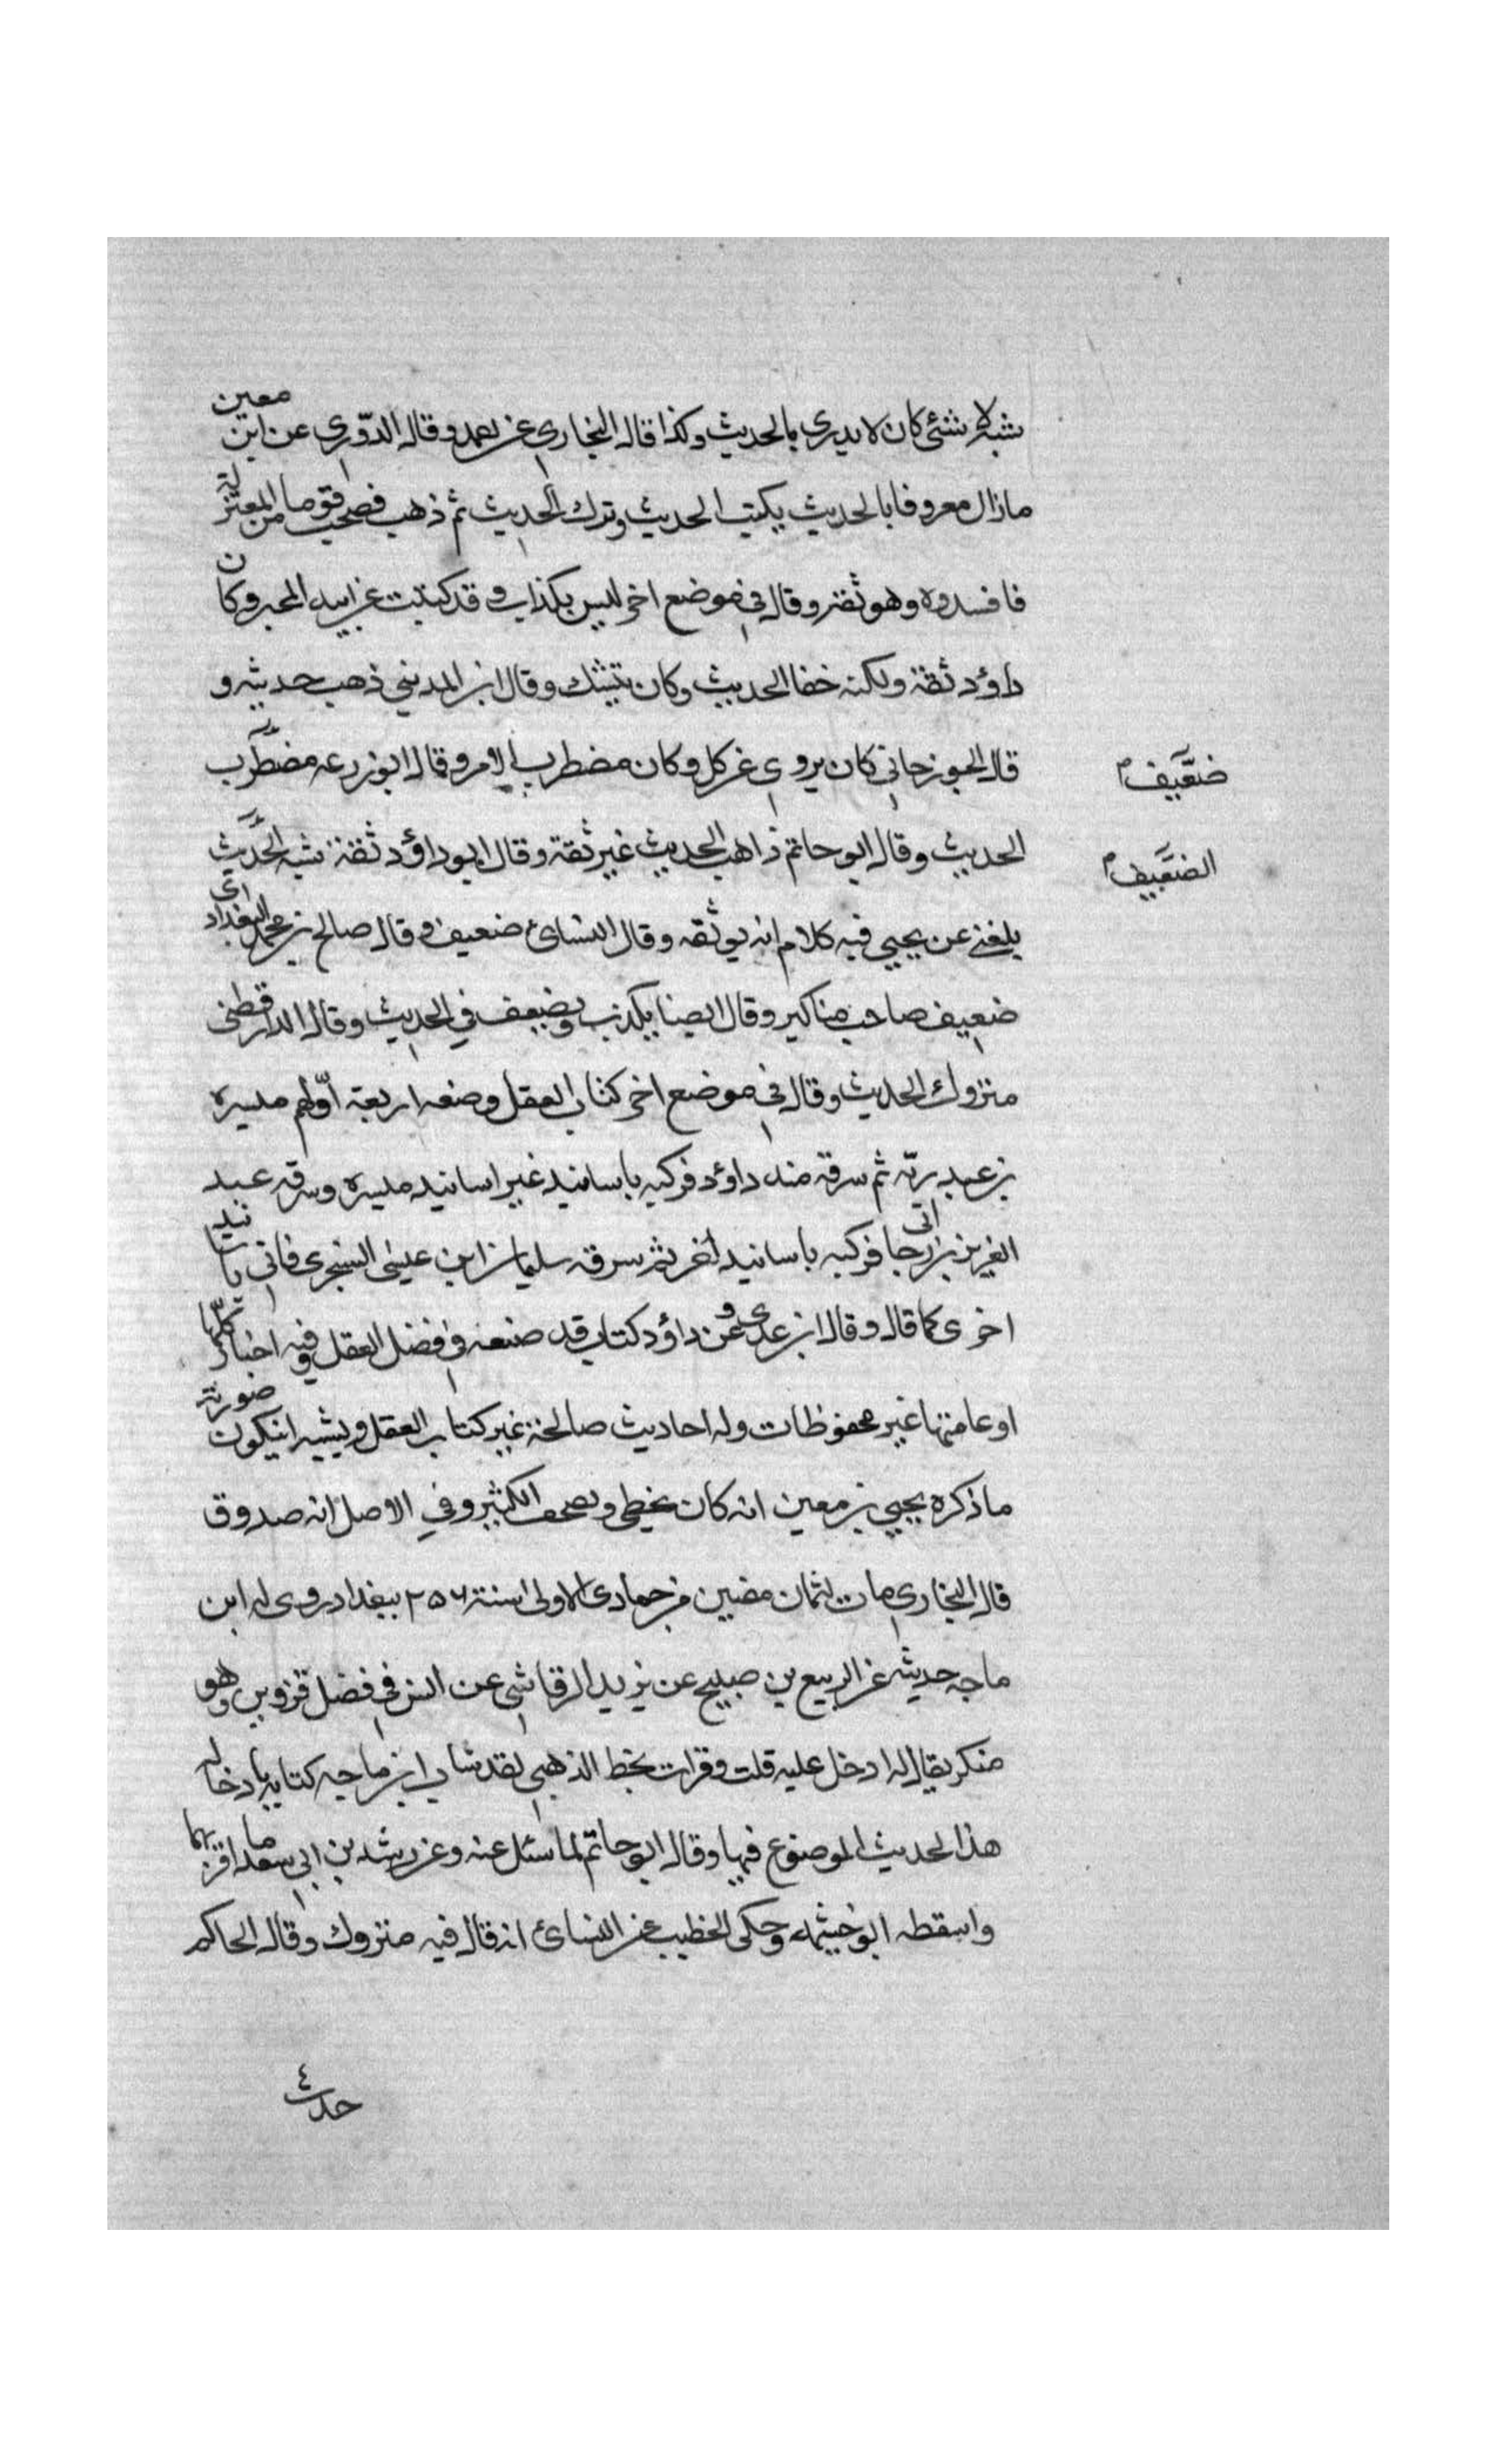 شبه لا شئ كان لا يدرى ما الحديث وكذا قال البخارى عن احمد وقال الدّورى عن ابن معين
مازال معروفا بالحديث يكتب الحديث وترك الحديث ثم ذهب فصحب قوما من المعتزلة
فافسدوه وهو ثقة وقال فى موضع اخر ليس بكذاب و قد كتبت عن ابيه المحبر وكان
داؤد ثقة ولكنه جفا الحديث وكان يتنسك وقال ابن المدينى ذهب حديثه و
قال الجوزجانى كان يروى عن كل وكان مضطرب الامر وقال ابو زرعه مضطرب
ضعيف
الحديث وقال ابو حاتم ذاهب الحديث غير ثقة وقال ابوداؤد ثقة شبه الحديث
الضعيف
بلغنى عن يحيى فيه كلام انه يوثقه وقال النسائ ضعيف وقال صالح بن محمد البغدادى
ضعيف صاحب مناكير وقال ايضا يكذب ويضعف فى الحديث وقال الدارقطنى
متروك الحديث وقال فى موضع اخر كتاب العقل وضعه اربعة اوّلهم ميسره
بن عبد ربّه ثم سرقه منه داؤد فركبه باسانيد غير اسانيد ميسره وسرقه عبد
العزيز بن ابى رجا فركبه باسانيد اخر ثم سرقه سليمان ابن عيسى السنجرى فاتى باسانيد
اخرى كما قال وقال ابن عدى وعن داؤد كتاب قد صنفه فى فضل العقل وفيه اخبار كلّها
او عامتها غير محفوظات وله احاديث صالحة غير كتاب العقل ويشبه انيكون صورته
ما ذكره يحيى بن معين انه كان يخطى ويصحف الكثير وفى الاصل انه صدوق
قال البخارى مات لثمان مضين من جمادى الاولى سنة ٢٥٦ ببغداد روى له ابن
ماجه حديثه عن الربيع بن صبيح عن يزيد الرقاشى عن انس فى فضل قزوين وهو
منكر يقال له ادخل عليه قلت وقرات بخط الذهبى لقد شان ابن ماجه كتابه بادخاله
هذا الحديث الموضوع فيها وقال ابو حاتم لما سئل عنه وعن رشد بن ابى سعد ما اقربهما
واسقطه ابو خيثمه وحكى الخطيب عن النسائ انه قال فيه متروك وقال الحاكم
حدث